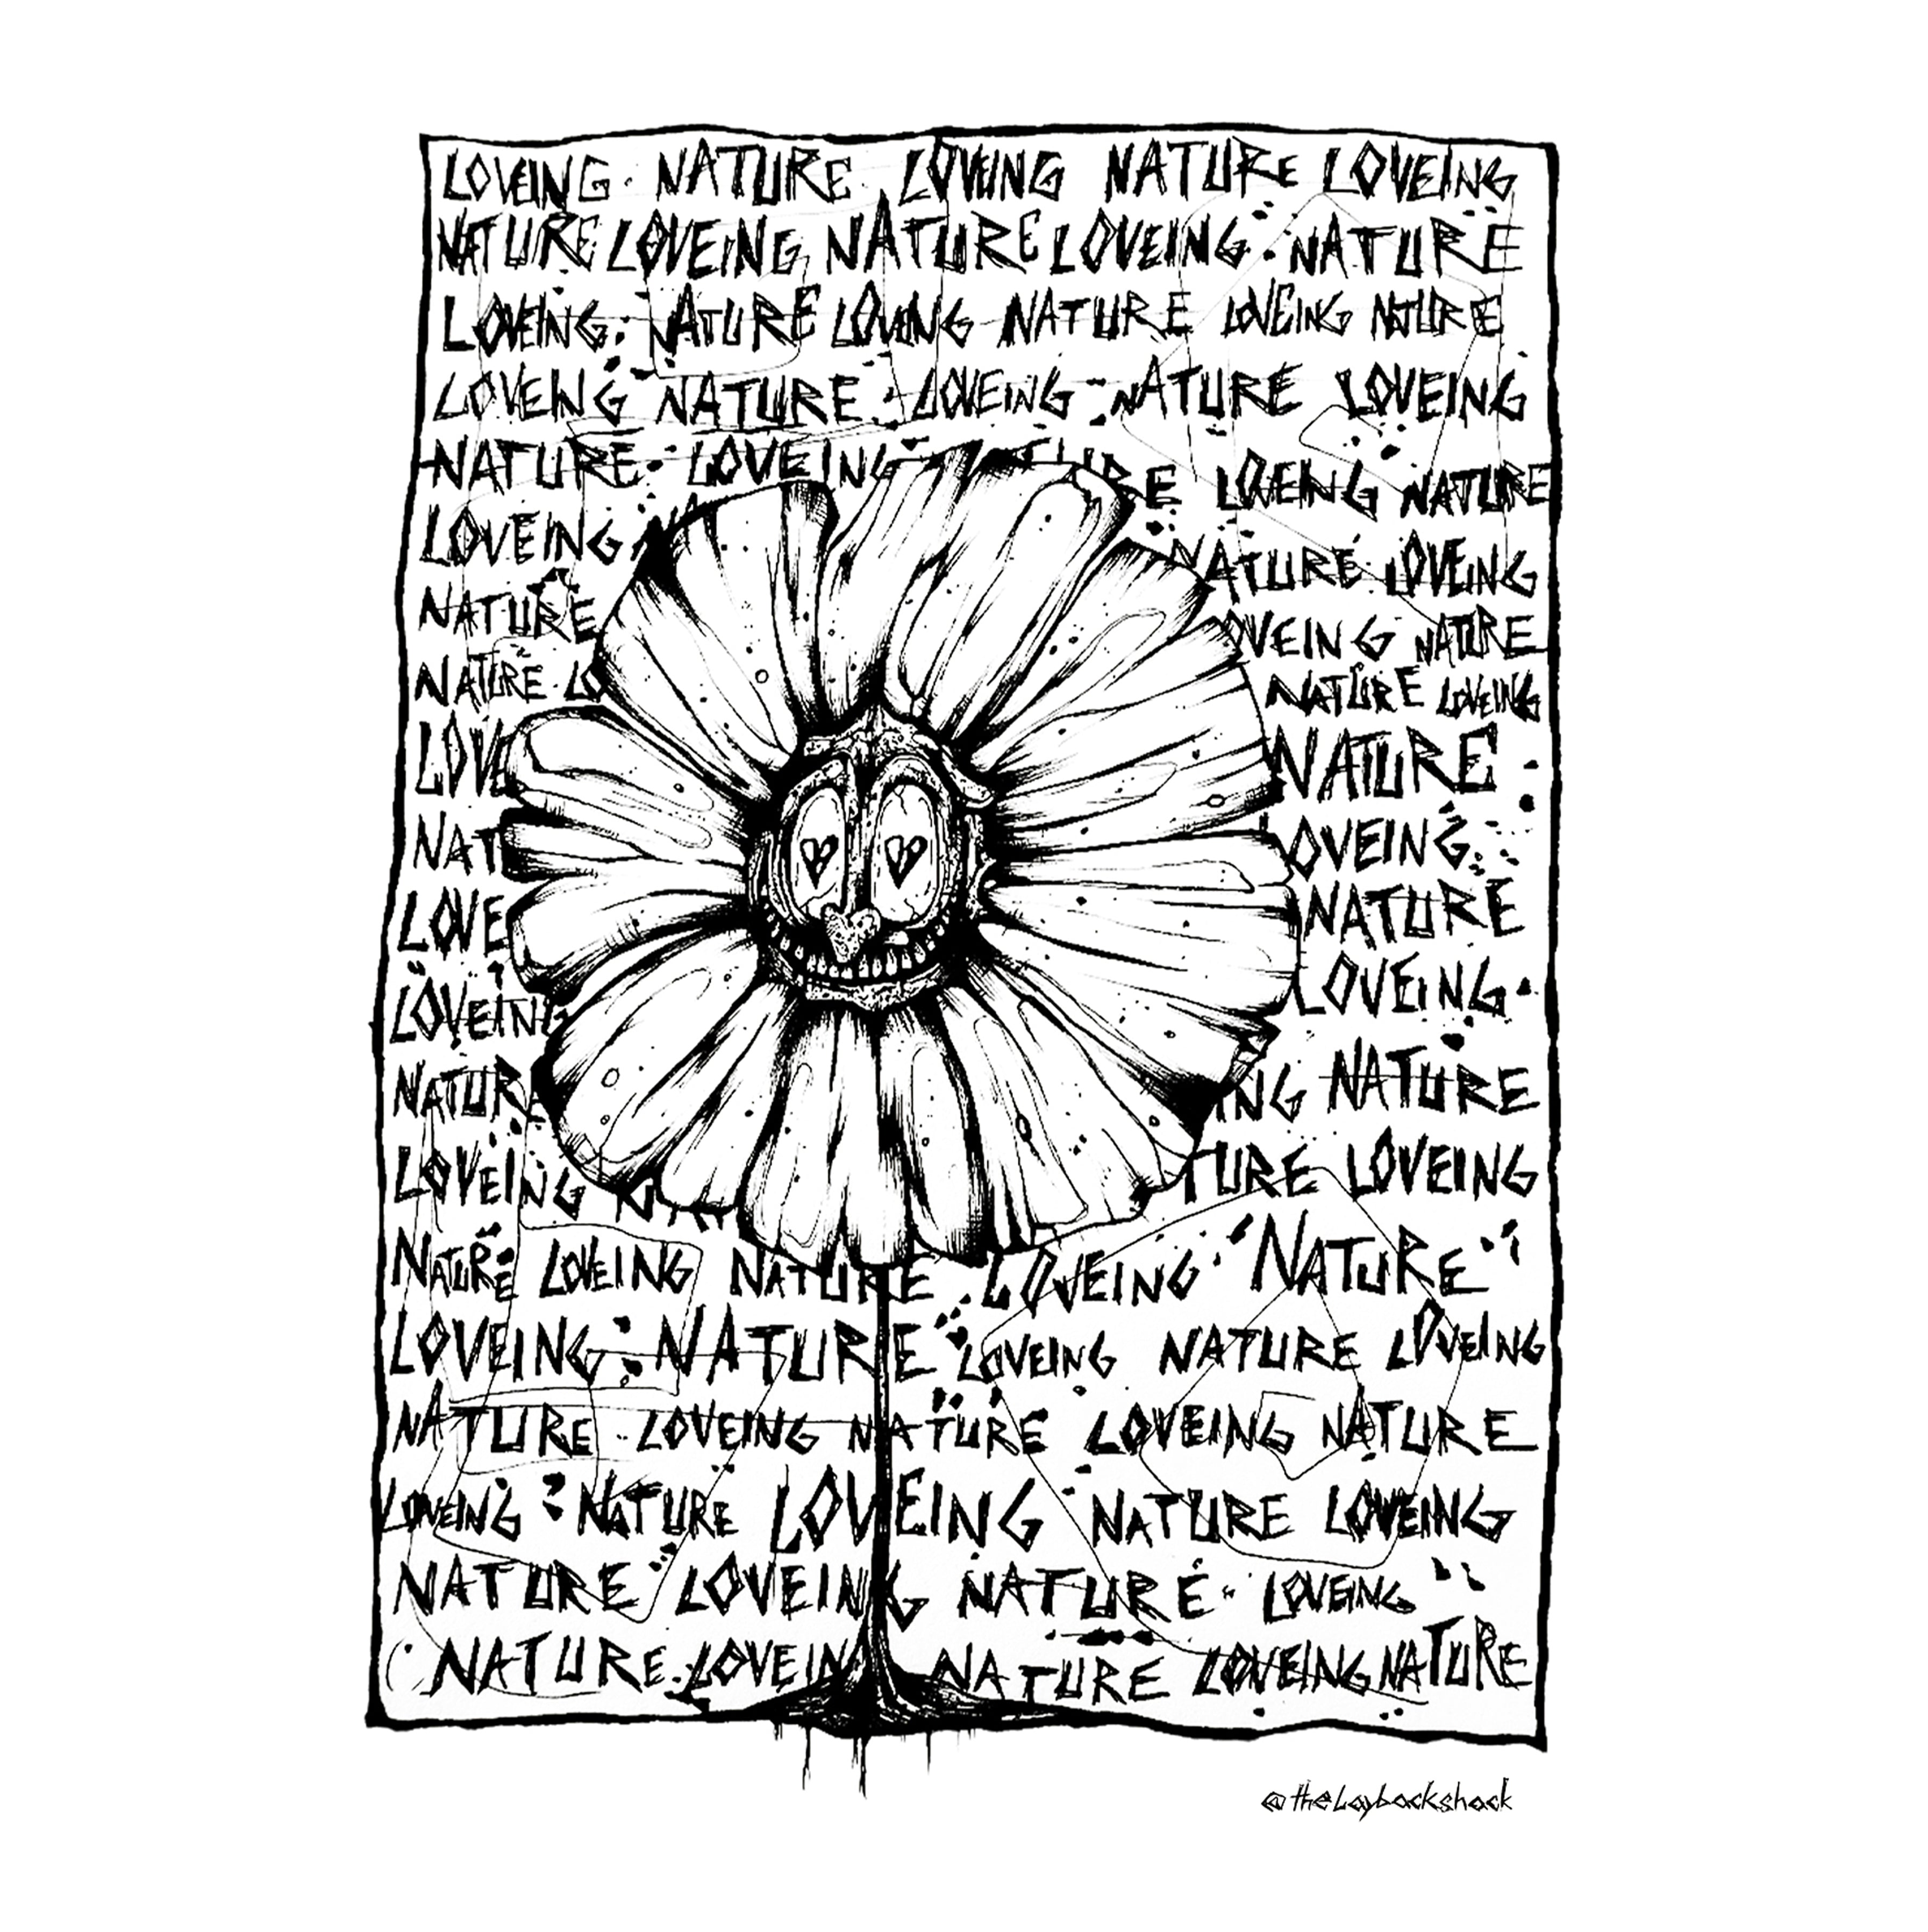 LOVEING NATURE LOVEING NATURE LOVEING
NATURE LOVEING NATURE LOVEING NATURE
LOVEING NATURE LOVING NATURE LOVEING NATURE
LOVEING NATURE LOVEING NATURE LOVEING
NATURE LOVEING NATURE LOVEING NATURE
LOVEING NATURE LOVEING
NATURE OVEING NATURE
NATURE LO NATURE LOVEING
LOVE NATURE
NAT OVEING
LOVE NATURE
LOVEING LOVEING
NATURE ING NATURE
LOVEING NAT TURE LOVEING
NATURE LOVEING NATURE LOVEING "NATURE"
LOVEING NATURE LOVEING NATURE LOVEING
NATURE LOVEING NATURE LOVEING NATURE
LOVEING NATURE LOVEING NATURE LOVEING
NATURE LOVEING NATURE LOVEING
NATURE LOVEING NATURE LOVEING NATURE
@thelaybackshack